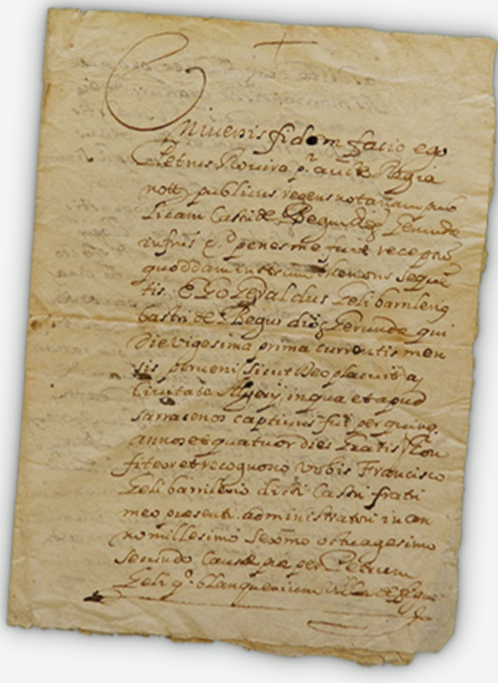 Univerris fidem facio ego
Petrus Rovira p.r auc.te Regia
nott. publicus regens notariam pub
licam Castri de Begur dioc. Gerunde
infris q. penes me fuit recept.
quoddam instrum. thenoris seque
tis. Ego Geli barrilerio
Castri de Begur dioc. Gerunde qui
die vigesima prima currentis men
sis perveni sicut Deo placuit a
Civitate Algerij, in qua et apud
sarracenos captivus fui per quinq.
annos et quatuor dies Gratis Con
fiteor et recognosco vobis Francisco
Geli barrilerio dicti Castri fratri
meo presenti administratori in an
no millesimo sexmo octuagesimo
secundo Causae piae per Petrum
Geli q.o blanquerium Villae de